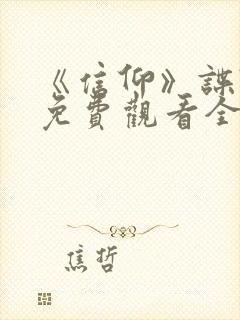 《信仰》諜
免費觀看全
焦哲